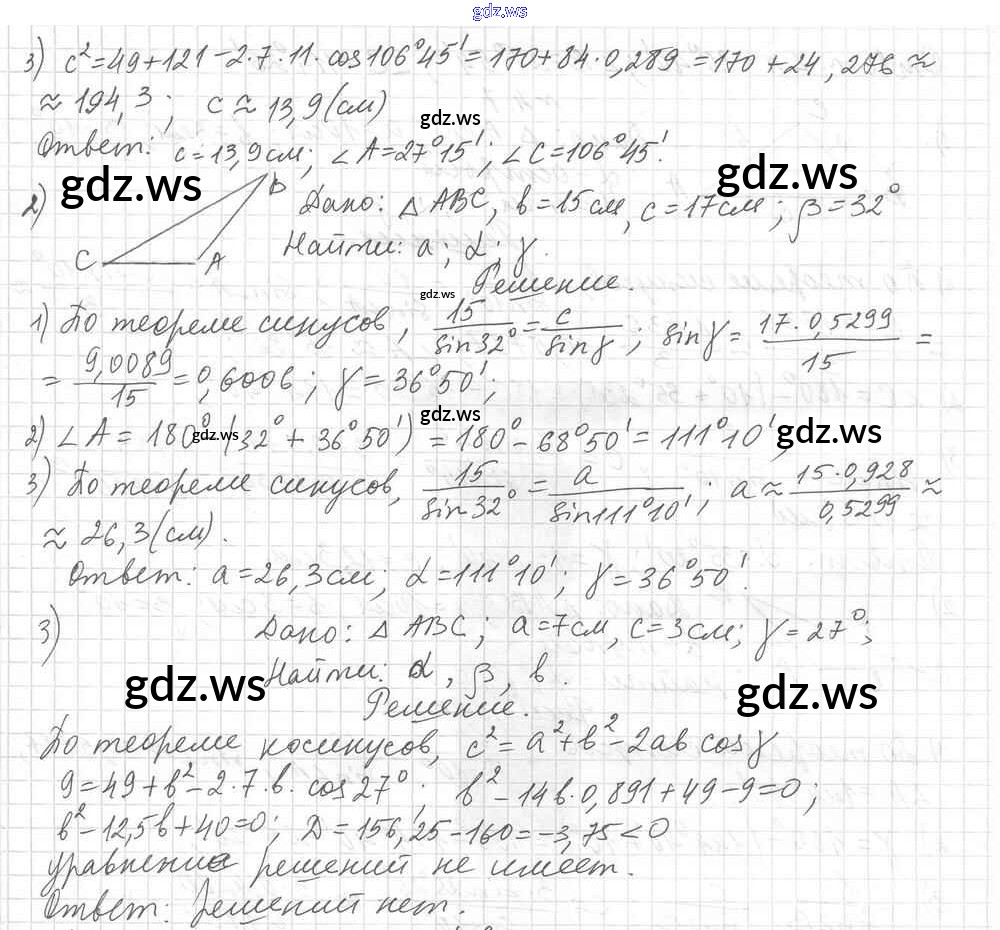 gdz.ws
3) c²=49+121-2·7·11·cos106°45'=170+84·0,289=170+24,276≈
≈194,3; c≈13,9(см)
gdz.ws
Ответ: c=13,9см; ∠A=27°15'; ∠C=106°45'.
gdz.ws gdz.ws
2) B Дано: △ABC, b=15см, c=17см; β=32°
C A Найти: a; α; γ.
Решение.
gdz.ws
1) По теореме синусов, 15/sin32°=c/sinγ; sinγ=17·0,5299/15=
=9,0089/15=0,6006; γ=36°50';
gdz.ws
2) ∠A=180°-(32°+36°50')=180°-68°50'=111°10';
gdz.ws gdz.ws
3) По теореме синусов, 15/sin32°=a/sin111°10'; a≈15·0,928/0,5299≈
≈26,3(см).
Ответ: a=26,3см; α=111°10'; γ=36°50'.
3) Дано: △ABC; a=7см, c=3см; γ=27°;
Найти: α, β, b.
gdz.ws gdz.ws
Решение.
По теореме косинусов, c²=a²+b²-2ab cosγ
9=49+b²-2·7·b·cos27°; b²-14b·0,891+49-9=0;
b²-12,5b+40=0; D=156,25-160=-3,75<0
уравнение решений не имеет.
Ответ: решений нет.